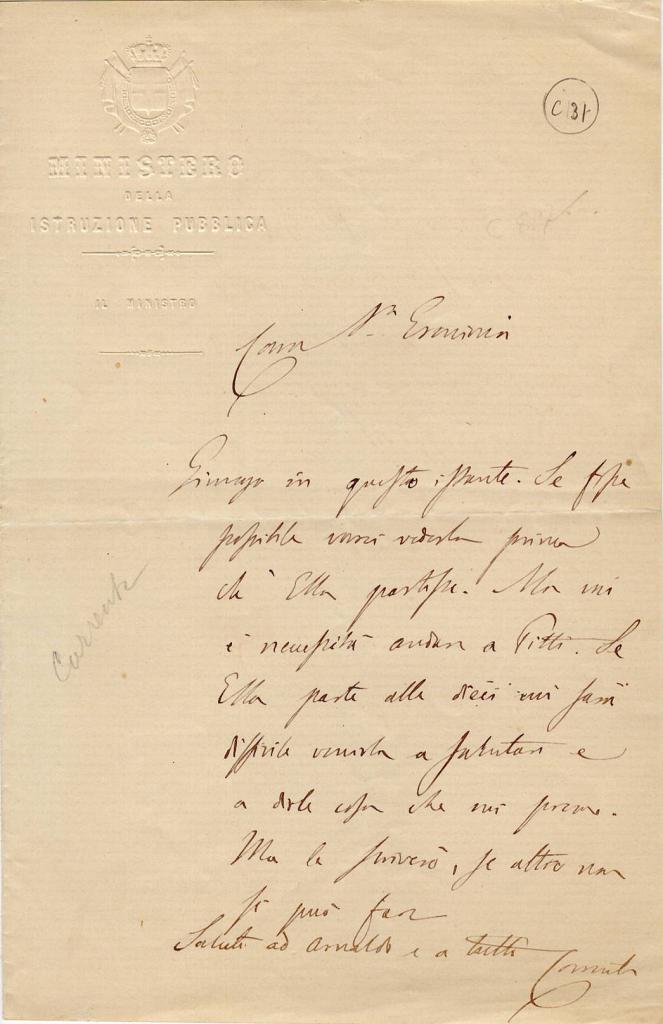 MINISTERO
DELLA
ISTRUZIONE PUBBLICA
IL MINISTRO
C 31
Cara Sra Erminia
Giungo in questo istante. Se fosse
possibile vorrei vederla prima
ch' Ella partisse. Ma mi
è necessità andare a Pitti. Se
Ella parte alle dieci mi sarà
difficile venirla a salutare e
a dirle cosa che mi preme.
Ma le scriverò, se altro non
si può fare
Saluti ad Arnaldo e a tutti
Correnti
Correnti